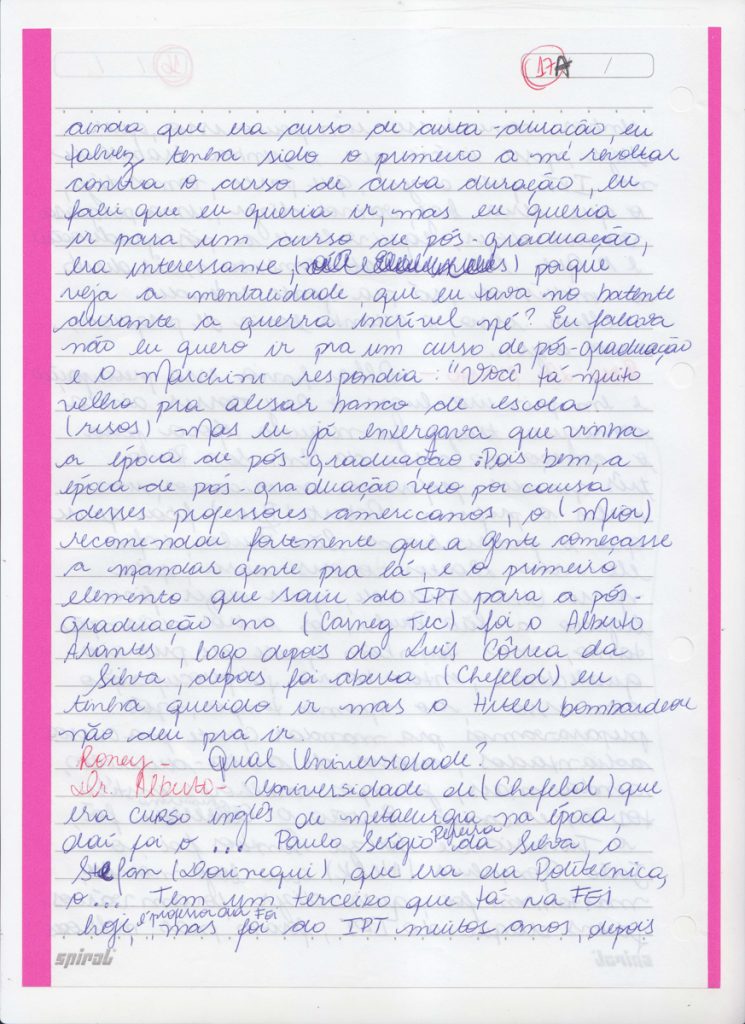 17A /
ainda que era curso de curta-duração, eu
talvez tenha sido o primeiro a me revoltar
contra o curso de curta duração, eu
falei que eu queria ir, mas eu queria
ir para um curso de pós-graduação,
era interessante, ( ) poque
veja a mentalidade, que eu tava no batente
durante a guerra incrível né? Eu falava
não eu quero ir pra um curso de pós-graduação
e o Marchini respondia: "Você tá muito
velho pra alisar banco de escola
(risos) Mas eu já enxergava que vinha
a época de pós-graduação. Pois bem, a
época de pós-graduação veio por causa
desses professores americanos, o (Mior)
recomendou fortemente que a gente começasse
a mandar gente pra lá, e o primeiro
elemento que saiu do IPT para a pós-
graduação no (Carneg Tec) foi o Alberto
Arantes, logo depois do Luis Côrrea da
Silva, depois foi aberta (Chefeld) eu
tenha querido ir mas o Hitler bombardeou
não deu pra ir
Roney - Qual Universidade?
Dr. Alberto - Universidade de (Chefeld) que
era curso inglês de metalurgia na época,
daí foi o ... Paulo Sérgio Pereira da Silva, o
Stefan (Dorinequi), que era da Politécnica,
o... Tem um terceiro que tá na FEI
hoje, é professor da FEI mas foi do IPT muitos anos, depois
spiral